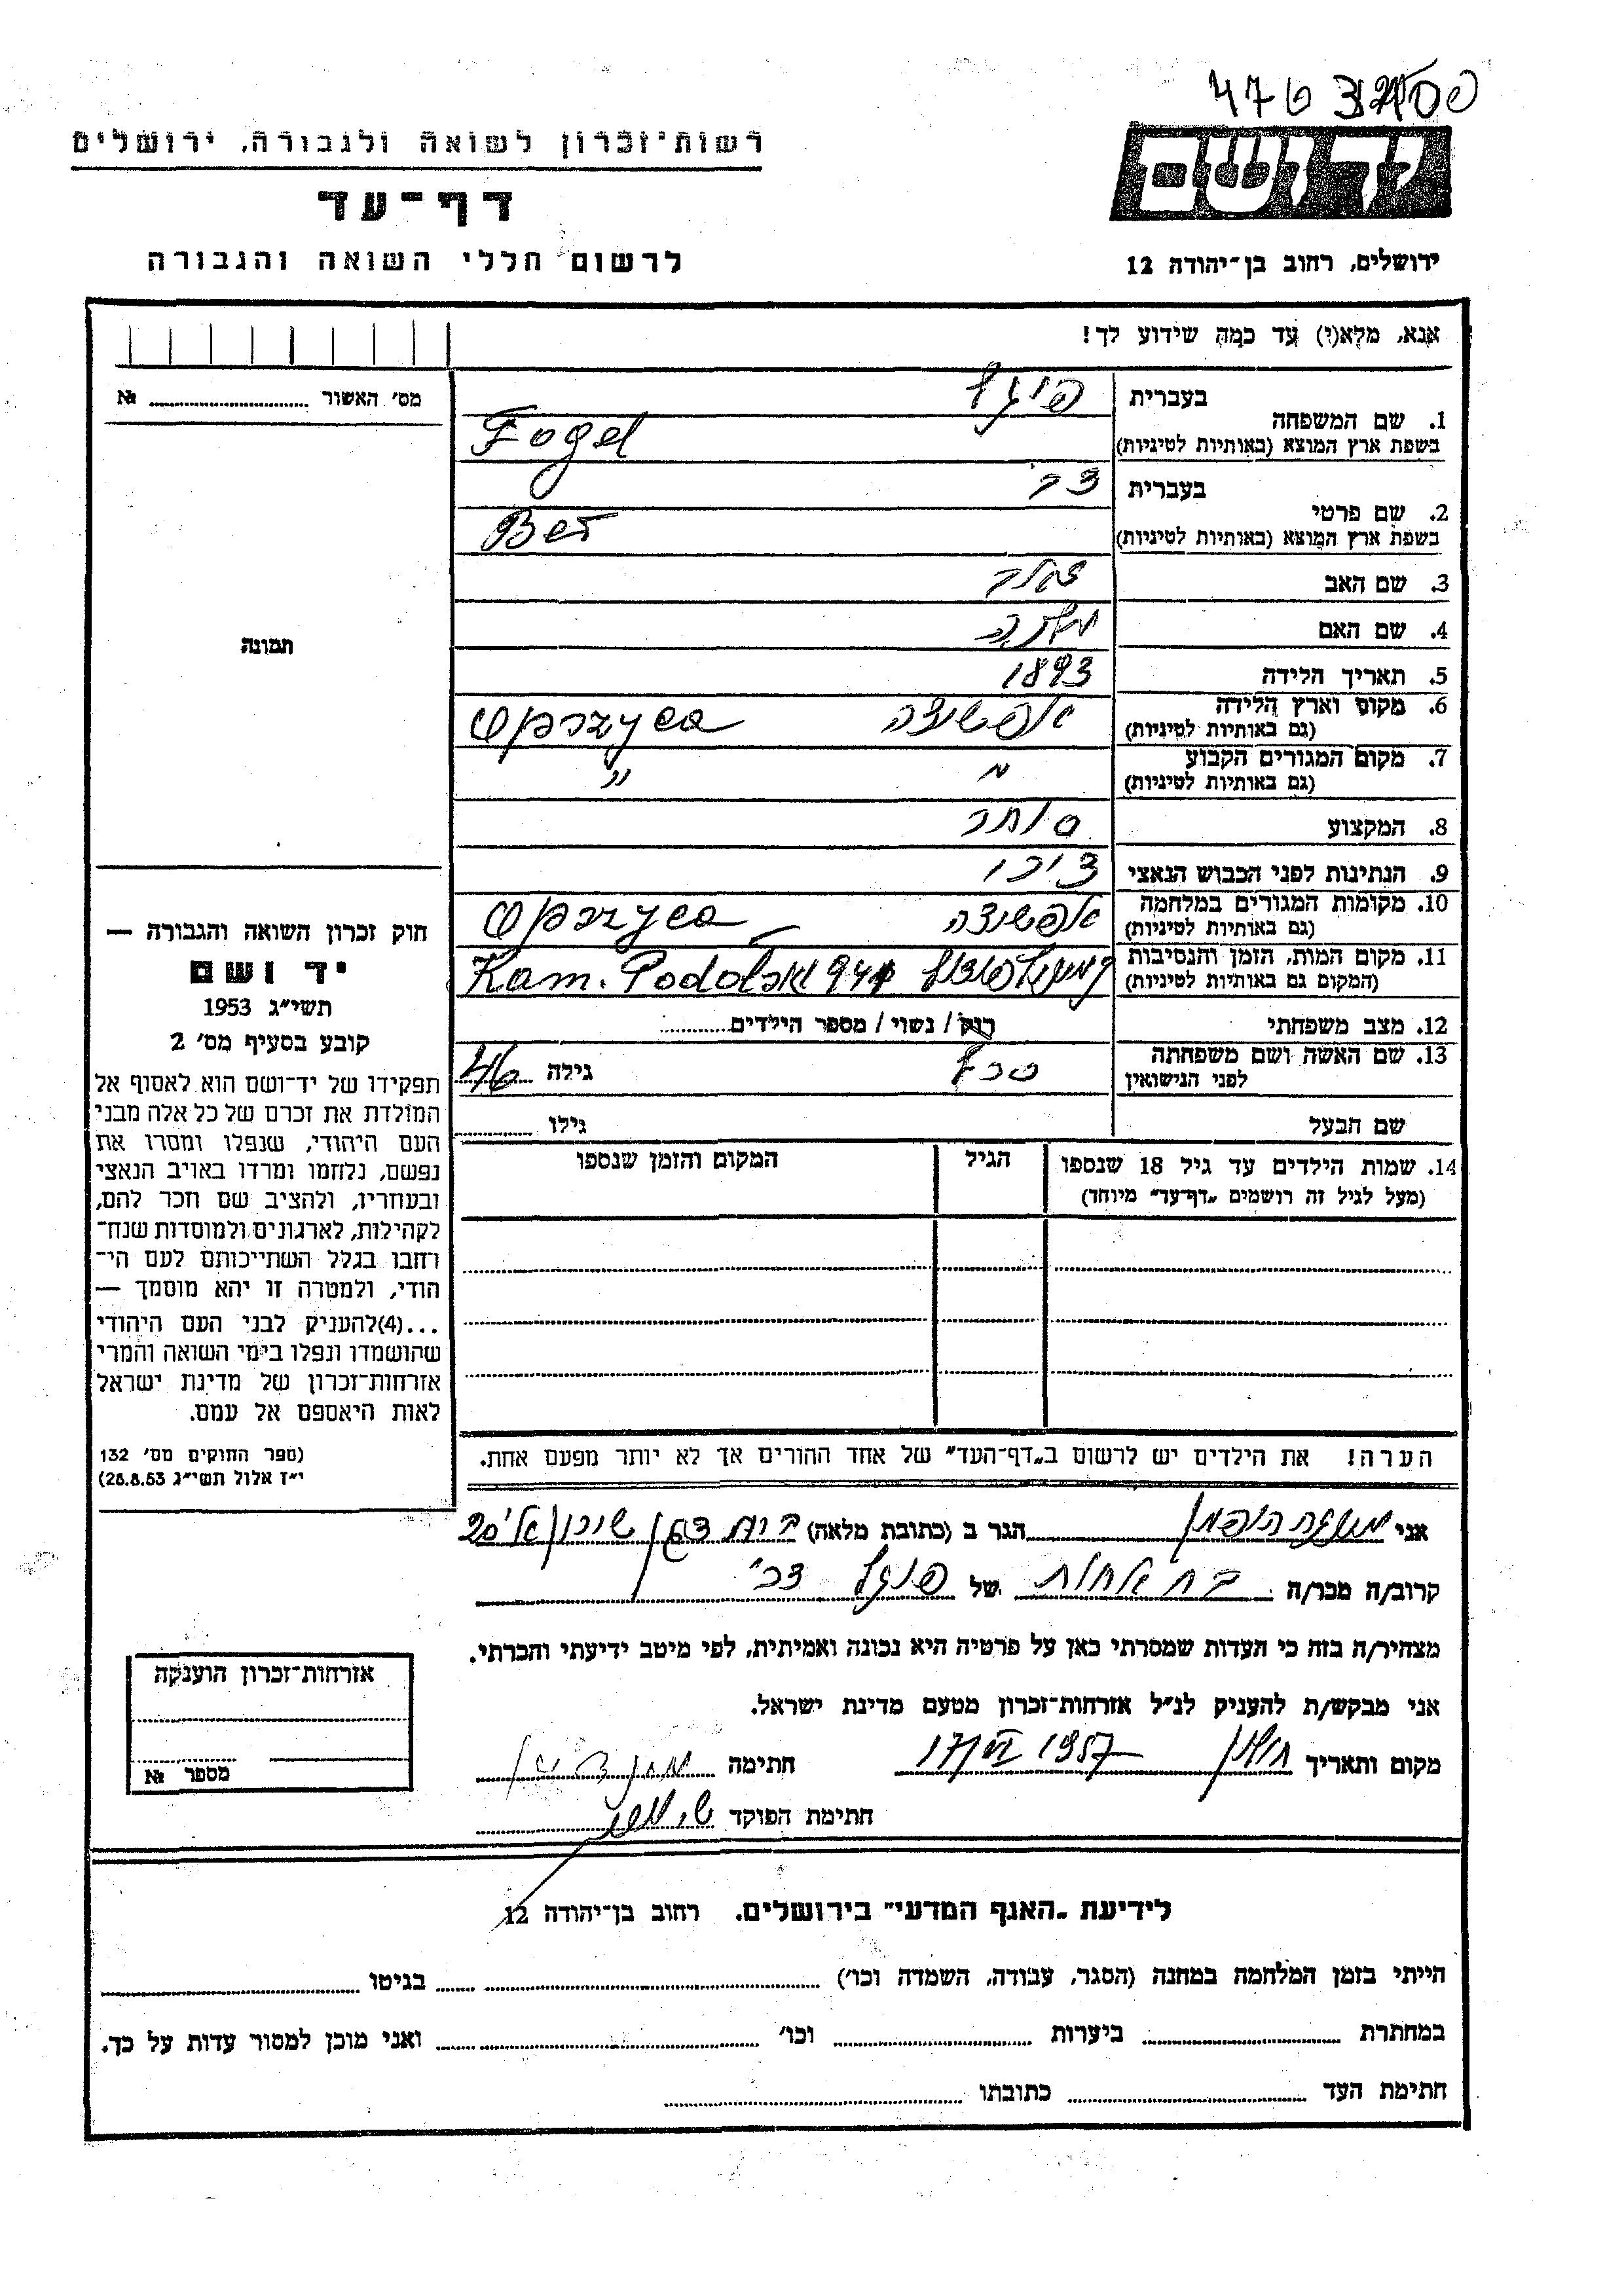 רשות־זכרון לשואה ולגבורה, ירושלים
דף־עד
לרשום חללי השואה והגבורה
יד ושם
ירושלים, רחוב בן־יהודה 12
אנא, מלא(י) עד כמה שידוע לך!
מס׳ האשור №
1. שם המשפחה
בעברית פוגל
בשפת ארץ המוצא (באותיות לטיניות) Fogel
2. שם פרטי
בעברית בר
בשפת ארץ המוצא (באותיות לטיניות) Ber
3. שם האב
4. שם האם
5. תאריך הלידה 1893
6. מקום וארץ הלידה
(גם באותיות לטיניות) Oprzyca
7. מקום המגורים הקבוע
(גם באותיות לטיניות) " "
8. המקצוע סוחר
9. הנתינות לפני הכבוש הנאצי
10. מקומות המגורים במלחמה
(גם באותיות לטיניות) Oprzyca
11. מקום המות, הזמן והנסיבות
(המקום גם באותיות לטיניות) Kam. Podolski
12. מצב משפחתי רווק / נשוי / מספר הילדים
13. שם האשה ושם משפחתה
לפני הנישואין גילה 46
שם הבעל גילו
14. שמות הילדים עד גיל 18 שנספו
(מעל לגיל זה רושמים „דף־עד” מיוחד)
הגיל
המקום והזמן שנספו
הערה! את הילדים יש לרשום ב„דף־העד” של אחד ההורים אך לא יותר מפעם אחת.
תמונה
חוק זכרון השואה והגבורה —
יד ושם
תשי״ג 1953
קובע בסעיף מס׳ 2
תפקידו של יד־ושם הוא לאסוף אל
המולדת את זכרם של כל אלה מבני
העם היהודי, שנפלו ומסרו את
נפשם, נלחמו ומרדו באויב הנאצי
ובעוזריו, ולהציב שם וזכר להם,
לקהילות, לארגונים ולמוסדות שנח־
רחבו בגלל השתייכותם לעם הי־
הודי, ולמטרה זו יהא מוסמך —
...(4)להעניק לבני העם היהודי
שהושמדו ונפלו בימי השואה והמרי
אזרחות־זכרון של מדינת ישראל
לאות היאספם אל עמם.
(ספר החוקים מס׳ 132
י״ז אלול תשי״ג 28.8.53)
אני הגר ב (כתובת מלאה) בית דגן שיכון
קרוב/ה מכר/ה בת אחות של פוגל
מצהיר/ה בזה כי העדות שמסרתי כאן על פרטיה היא נכונה ואמיתית, לפי מיטב ידיעתי והכרתי.
אני מבקש/ת להעניק לנ״ל אזרחות־זכרון מטעם מדינת ישראל.
מקום ותאריך חולון 17/VI 1957 חתימה
חתימת הפוקד
אזרחות־זכרון הוענקה
מספר №
לידיעת „האגף המדעי” בירושלים, רחוב בן־יהודה 12
הייתי בזמן המלחמה במחנה (הסגר, עבודה, השמדה וכו׳) בגיטו
במחתרת ביערות וכו׳ ואני מוכן למסור עדות על כך.
חתימת העד כתובתו